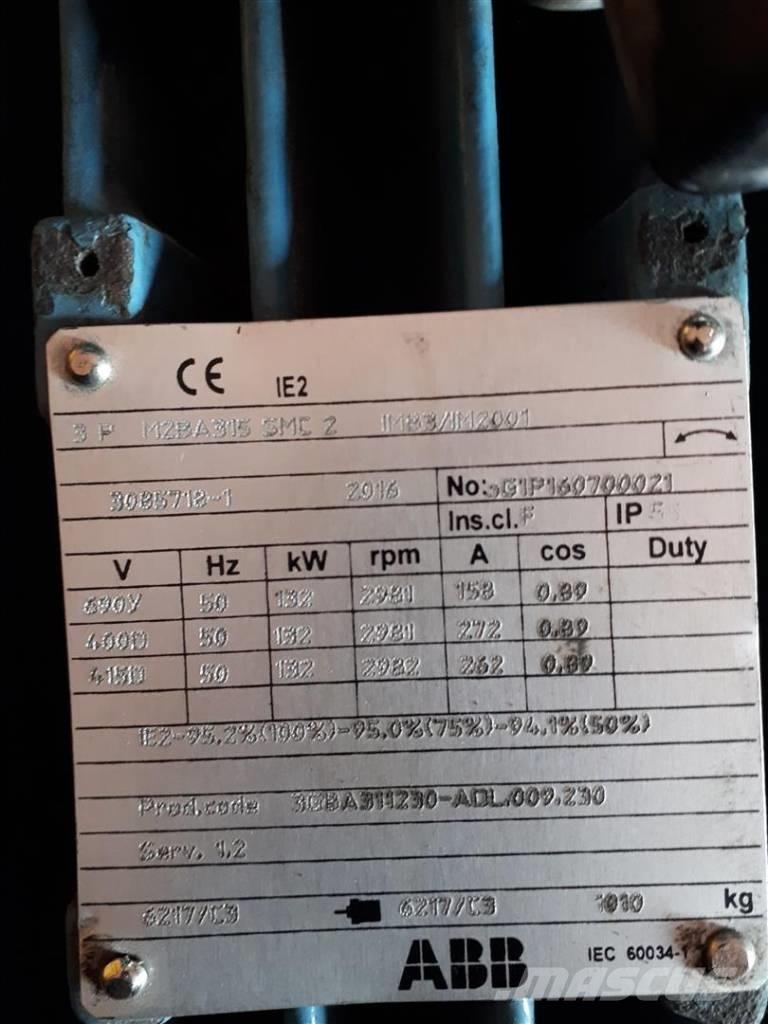 CE IE2
3 P M2BA315 SMC 2 IMB3/IM2001
3085718-1 2016 No: 3G1P160700021
Ins.cl. F IP 55
V Hz kW rpm A cos Duty
690Y 50 132 2981 158 0.89
400D 50 132 2981 272 0.89
415D 50 132 2982 262 0.89
IE2-95.2%(100%)-95.0%(75%)-94.1%(50%)
Prod.code 3GBA311230-ADL.009.230
Serv. 1.2
6217/C3 6217/C3 1010 kg
ABB IEC 60034-1
MASCUS